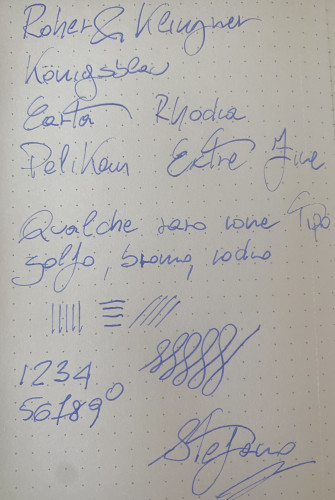 Roher & Klingner
Königsblau
Carta Rhodia
Pelikan Extre Fine
Qualche raro ione Tipo
zolfo, bromo, iodio
1234
567890
Stefano